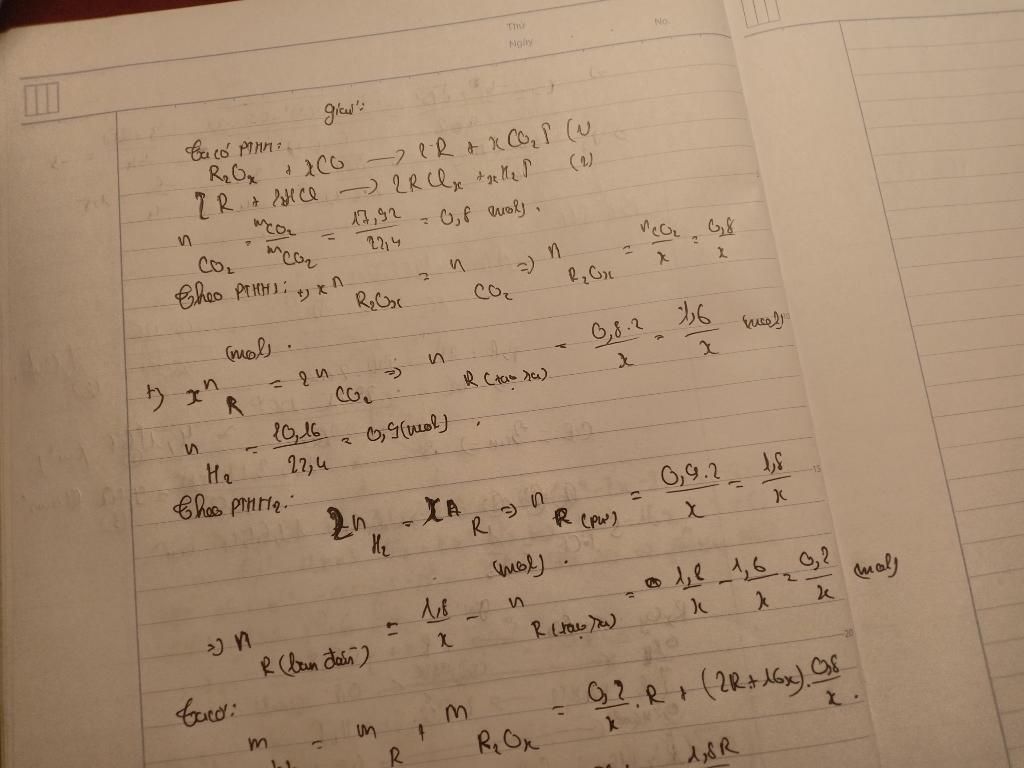 Thứ No.
Ngày
giải:
Ta có PTHH:
R₂Oₓ + xCO → 2R + xCO₂↑ (1)
2R + 2xHCl → 2RClₓ + xH₂↑ (2)
n CO₂ = = 17,92/22,4 = 0,8 mol.
Theo PTHH1: +) x n R₂Oₓ = n CO₂ => n R₂Oₓ = nCO₂/x = 0,8/x
(mol).
+) x n R = 2 n CO₂ => n R (tạo ra) = 0,8.2/x = 1,6/x (mol)
n H₂ = 20,16/22,4 = 0,9 (mol).
Theo PTHH2: 2n H₂ = x n R => n R (pư) = 0,9.2/x = 1,8/x
(mol).
=> n R (ban đầu) = 1,8/x - n R (tạo ra) = 1,8/x - 1,6/x = 0,2/x (mol)
Ta có:
m = m R + m R₂Oₓ = 0,2/x . R + (2R + 16x) . 0,8/x.
1,8R
15
20